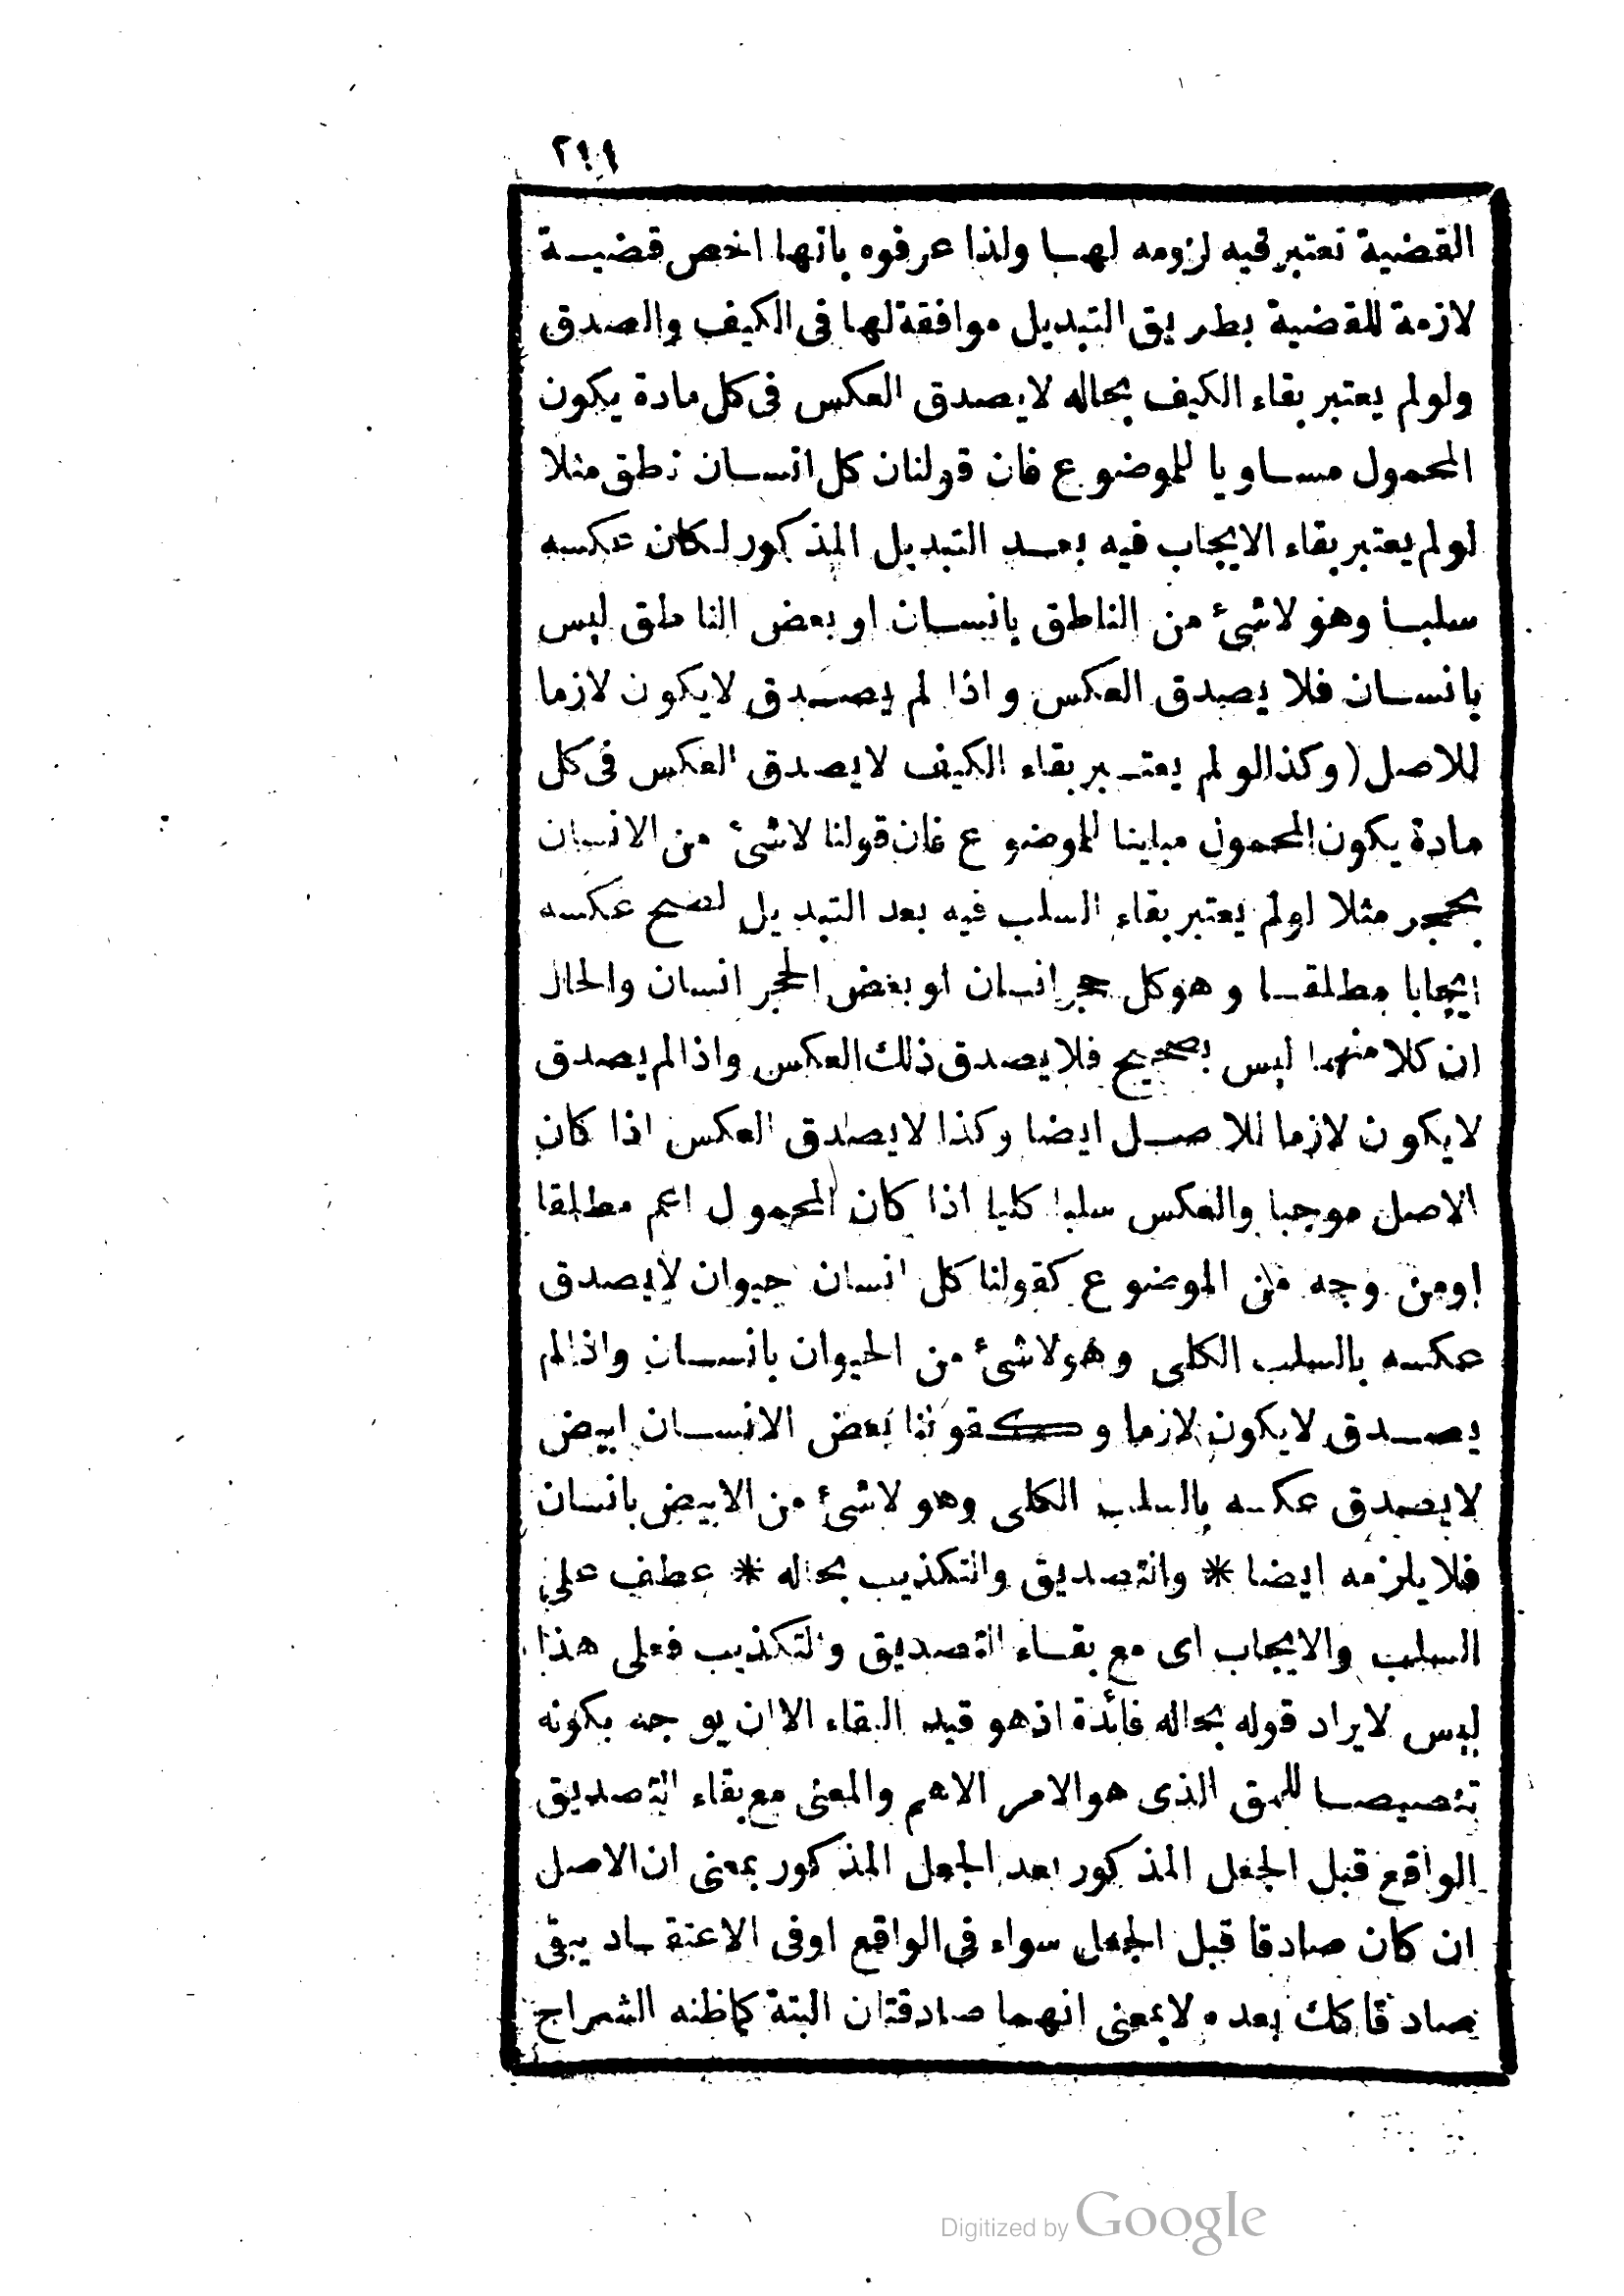 القضية تعتبر فيه لزومه لهــا ولذا عرفوه بانها اخص قضيــة
لازمة للقضية بطريق التبديل موافقة لها فى الكيف والصدق
ولو لم يعتبر بقاء الكيف بحاله لايصدق العكس فى كل مادة يكون
المحمول مســاويا للموضوع فان قولنان كل انســان ناطق مثلا
لو لم يعتبر بقاء الايجاب فيه بعــد التبديل المذكور لكان عكسه
سلبــا وهو لاشئ من الناطق بانســان او بعض الناطق ليس
بانســان فلا يصدق العكس واذا لم يصــدق لايكون لازما
للاصل (وكذا لو لم يعتــبر بقاء الكيف لايصدق العكس فى كل
مادة يكون المحمول مباينا للموضوع فان قولنا لاشئ من الانسان
بحجر مثلا لو لم يعتبر بقاء السلب فيه بعد التبديل لصح عكسه
ايجابا مطلقــا وهو كل حجر انسان او بعض الحجر انسان والحال
ان كلا منهما ليس بصحيح فلا يصدق ذلك العكس واذا لم يصدق
لايكون لازما للاصــل ايضا وكذا لايصدق العكس اذا كان
الاصل موجبا والعكس سلبا كليا اذا كان المحمول اعم مطلقا
او من وجه من الموضوع كقولنا كل انسان حيوان لايصدق
عكسه بالسلب الكلى وهو لاشئ من الحيوان بانســان واذا لم
يصــدق لايكون لازما وكقولنا بعض الانســان ابيض
لايصدق عكسه بالسلب الكلى وهو لاشئ من الابيض بانسان
فلا يلزمه ايضا * والتصديق والتكذيب بحاله * عطف على
السلب والايجاب اى مع بقــاء التصديق والتكذيب فعلى هذا
ليس لايراد قوله بحاله فائدة اذ هو قيد البقاء الا ان يوجه بكونه
تنصيصــا للمق الذى هو الامر الاهم والمعنى مع بقاء التصديق
الواقع قبل الجعل المذكور بعد الجعل المذكور بمعنى ان الاصل
ان كان صادقا قبل الجعل سواء فى الواقع او فى الاعتقــاد يبقى
صادقا كك بعده لا بمعنى انهما صادقتان البتة كما ظنه الشراح
Digitized by Google